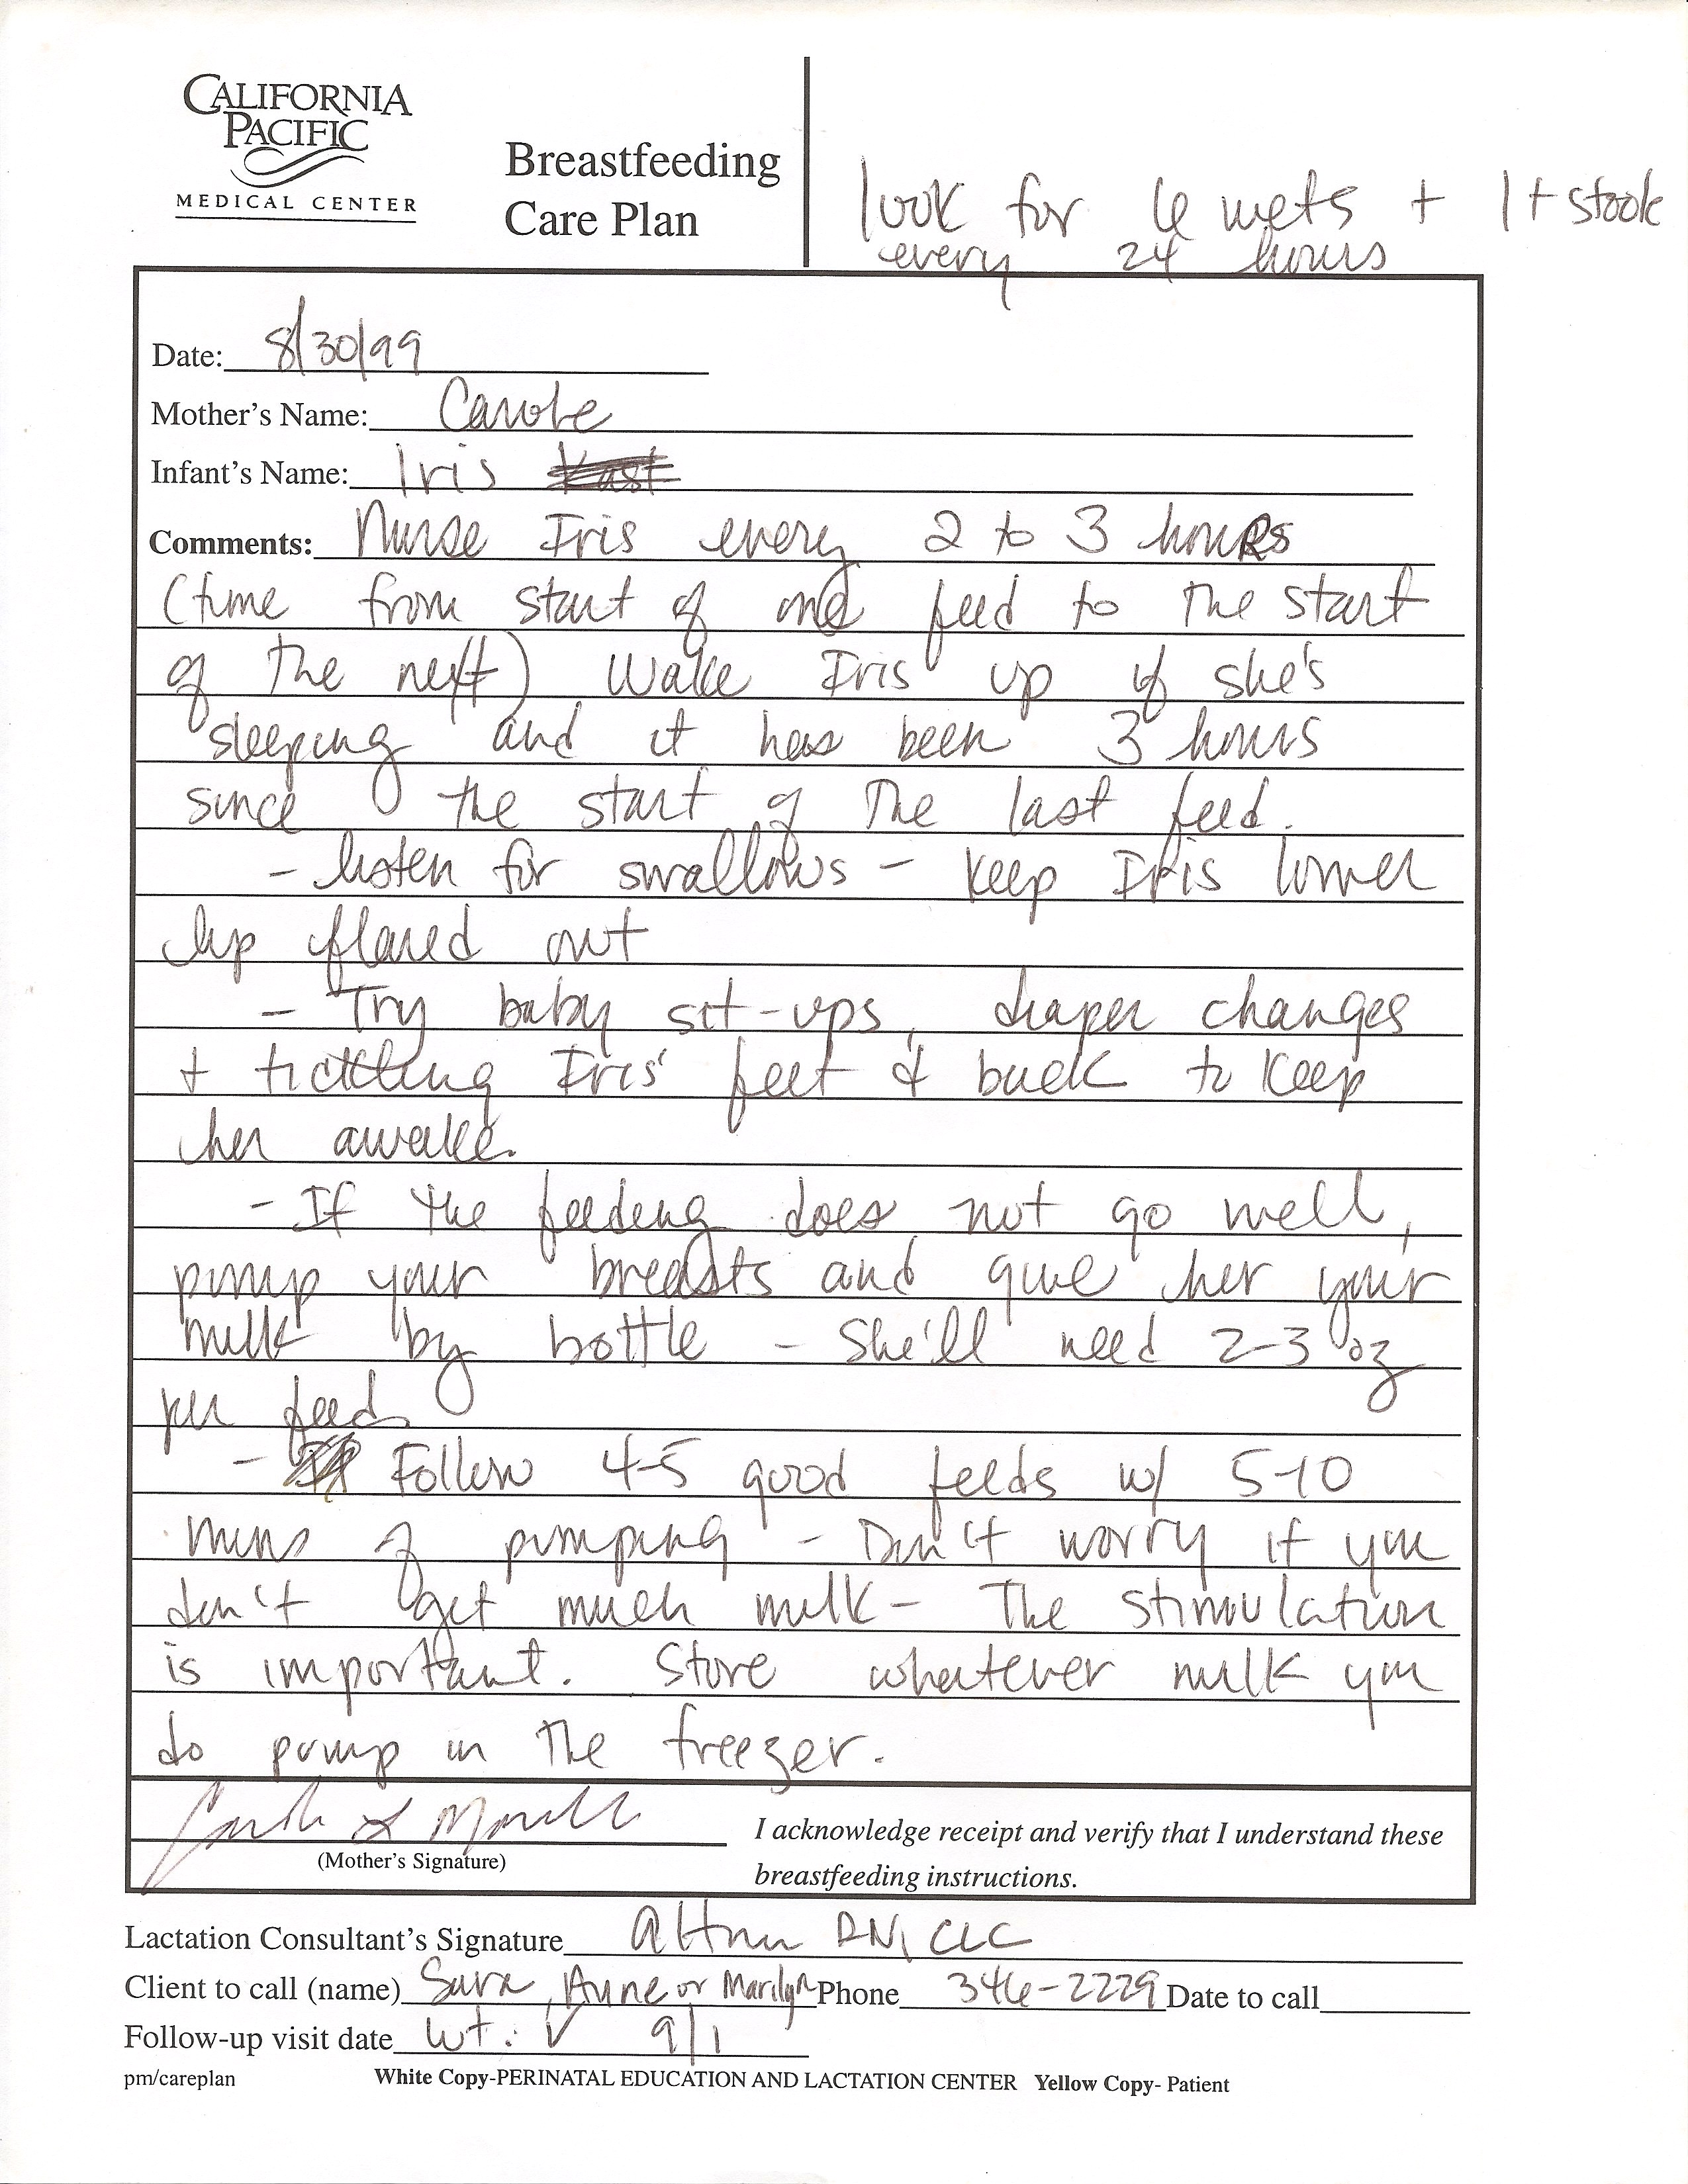 CALIFORNIA
PACIFIC
MEDICAL CENTER
Breastfeeding
Care Plan
look for 6 wets + 1+ stools
every 24 hours
Date: 8/30/99
Mother's Name: Carole
Infant's Name: Iris
Comments: Nurse Iris every 2 to 3 houRs
(time from start of one feed to the start
of the next) Wake Iris up if she's
sleeping and it has been 3 hours
since the start of the last feed.
- listen for swallows - keep Iris lower
lip flared out
- Try baby sit-ups, diaper changes
+ tickling Iris' feet & back to keep
her awake.
- If the feeding does not go well,
pump your breasts and give her your
milk by bottle - She'll need 2-3 oz
per feed.
- Follow 4-5 good feeds w/ 5-10
mins of pumping - Don't worry if you
don't get much milk - The stimulation
is important. Store whatever milk you
do pump in the freezer.
(Mother's Signature)
I acknowledge receipt and verify that I understand these
breastfeeding instructions.
Lactation Consultant's Signature RN, CLC
Client to call (name) Sara, Anne or Marilyn Phone 346-2229 Date to call
Follow-up visit date wt. ✓ 9/1
pm/careplan White Copy-PERINATAL EDUCATION AND LACTATION CENTER Yellow Copy- Patient